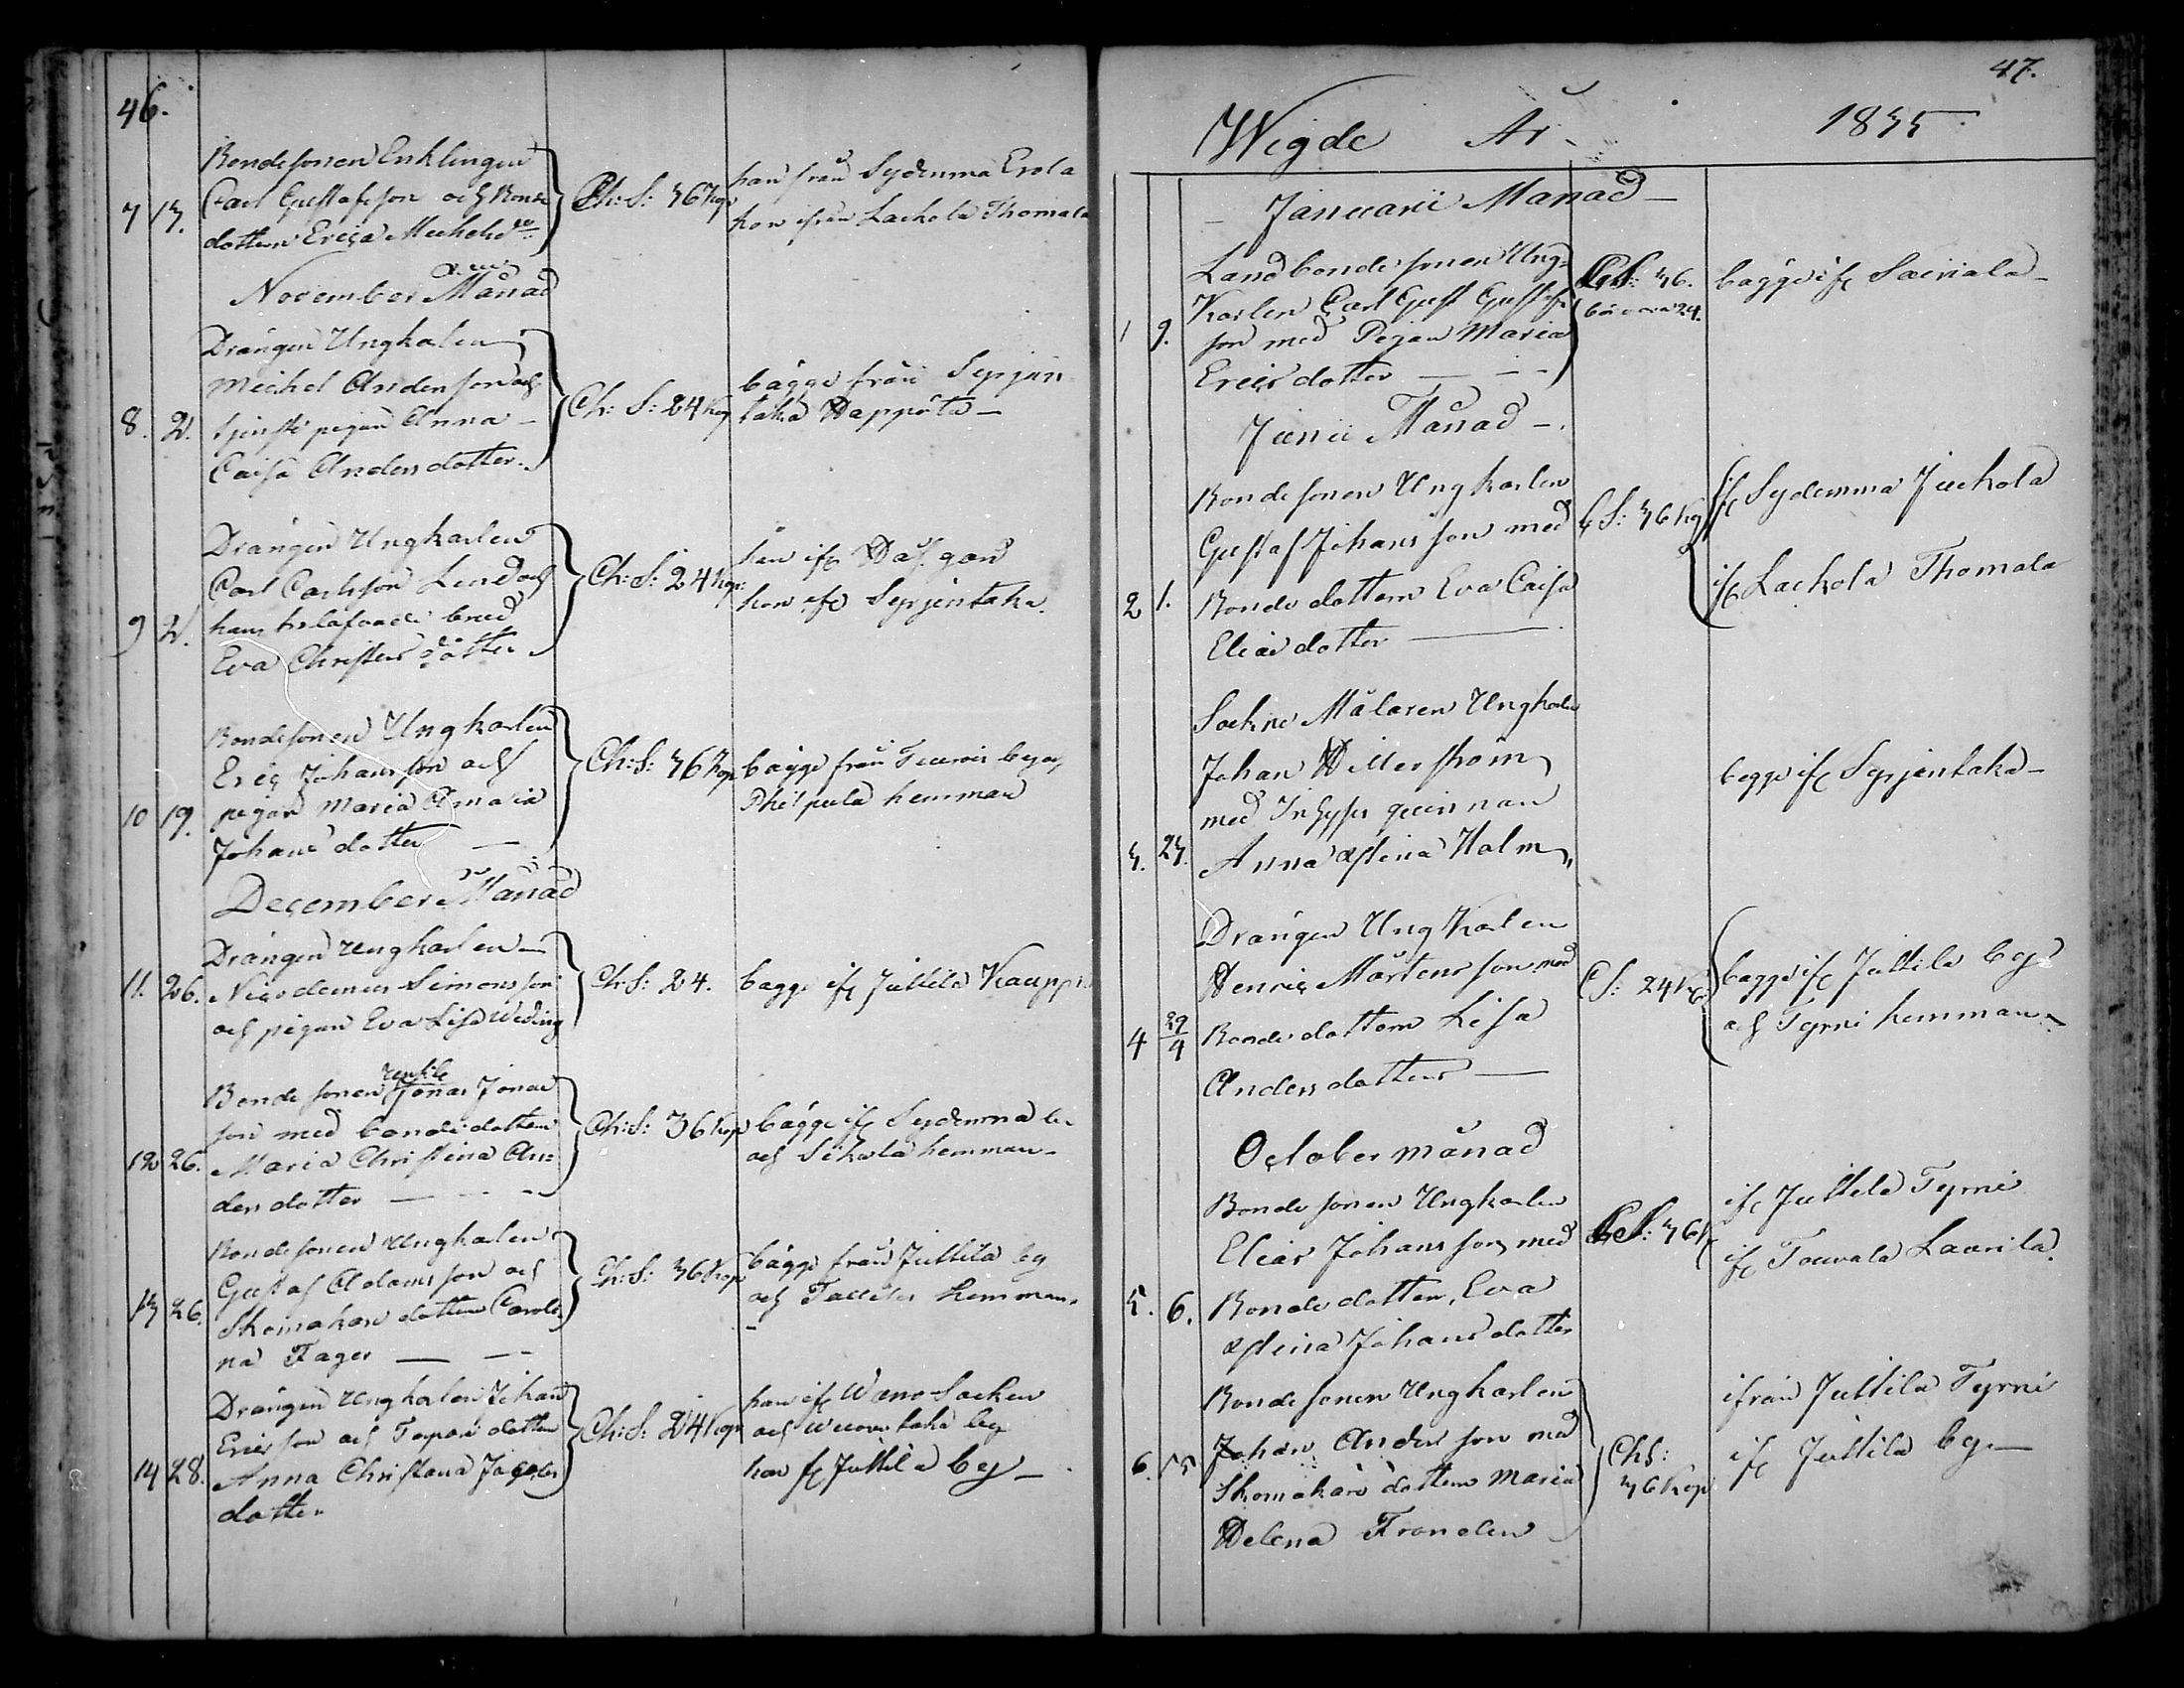 46.
7 13. Bondesonen Enklingen
Carl Gustafsson och Bonde
dottern Erica Michelsdr
Ch: S: 36 Kop
han från Sydänma Erola
hon ifrån Lackola Thomala
November Månad
8. 2. Drängen Ungkarlen
Michel Andersson och
tjenste pigan Anna
Caisa Andersdotter.
Ch: S: 24 Kop
bägge från Syrjän
taka Happota
9 2. Drängen Ungkarlen
Carl Carlsson Lind och
hans trolofvade brud
Eva Christers dotter
Ch: S: 24 Kop:
han ifr
hon ifr Syrjentaka.
10 19. Bondesonen Ungkarlen
Eric Johansson och
pigan Maria Amalia
Johans dotter
Ch: S: 36 Kop
bägge från by och
Philpula hemman
December Månad
11. 26. Drängen Ungkarlen
Nicodemus Simonsson
och pigan Eva Lisa Weding
Ch: S: 24.
bägge ifr Juttila Kauppi
12 26. Bonde sonen Enkl Jonas Jonas
son med bonde dottern
Maria Christina An=
ders dotter
Ch: S: 36 Kop
bägge ifr Sydänma by
och Sikala hemman
13 26. Bondesonen Ungkarlen
Gustaf Adamsson och
Skomakare dottern Caroli
na Fager
Ch: S: 36 Kop
bägge från Juttila by
och hemman.
14 28. Drängen Ungkarlen Johan
Ericsson och Torpare dotter
Anna Christina Jacobs
dotter
Ch: S: 24 Kop
han ifr Wånå Socken
och by
hon fr Juttila by
47.
Wigde År 1835
Januarii Månad
1 9. Landbonde sonen Ung=
Karlen Carl Gust Gustafs
son med Pigan Maria
Erics dotter
CS: 36.
24.
bägge ifr Sairiala
Junii Månad
2 1. Bonde sonen Ungkarlen
Gustaf Johansson med
Bonde dottern Eva Caisa
Elias dotter
CS: 36 Kop
ifr Sydänma Juckola
ifr Lackola Thomala
3. 23. Sockne Målaren Ungkarlen
Johan Hillerström
med Inhyses quinnan
Anna Stina Holm
begge ifr Syrjentaka
4 29/9 Drängen Ungkarlen
Henric Mårtensson med
Bonde dottern Lisa
Anders dotter
CS: 24 Kop
bägge ifr Juttila by
och Tyrni hemman
October månad
5. 6. Bonde sonen Ungkarlen
Elias Johansson med
Bonde dottern Eva
Stina Johans dotter
CS: 36 K
ifr Juttila Tyrni
ifr Touvala Laurila.
6. 15 Bonde sonen Ungkarlen
Johan Andersson med
Skomakare dottern Maria
Helena Frondén
ChS:
36 Kop
ifrån Juttila Tyrni
ifr Juttila by.